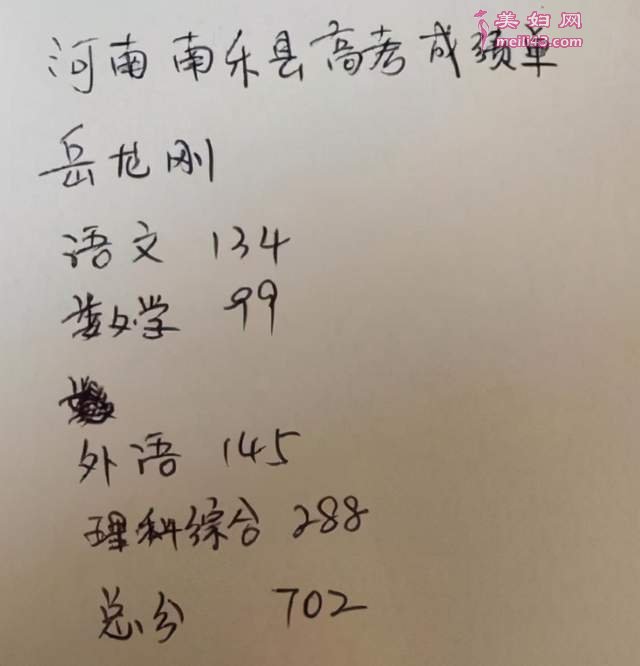 美妇网
meili43.com
河南南乐县高考成绩单
岳龙刚
语文 134
数学 99
外语 145
理科综合 288
总分 702